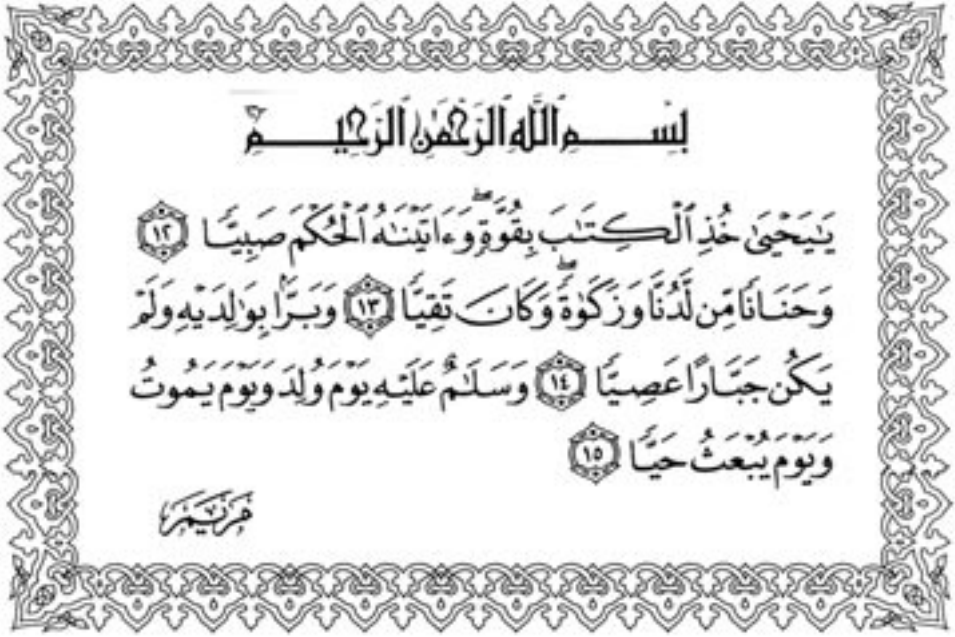 بِسْمِ ٱللَّهِ ٱلرَّحْمَٰنِ ٱلرَّحِيمِ
يَٰيَحْيَىٰ خُذِ ٱلْكِتَٰبَ بِقُوَّةٍۖ وَءَاتَيْنَٰهُ ٱلْحُكْمَ صَبِيًّا ١٢
وَحَنَانًا مِّن لَّدُنَّا وَزَكَوٰةًۖ وَكَانَ تَقِيًّا ١٣ وَبَرًّۢا بِوَٰلِدَيْهِ وَلَمْ
يَكُن جَبَّارًا عَصِيًّا ١٤ وَسَلَٰمٌ عَلَيْهِ يَوْمَ وُلِدَ وَيَوْمَ يَمُوتُ
وَيَوْمَ يُبْعَثُ حَيًّا ١٥
مَرْيَم